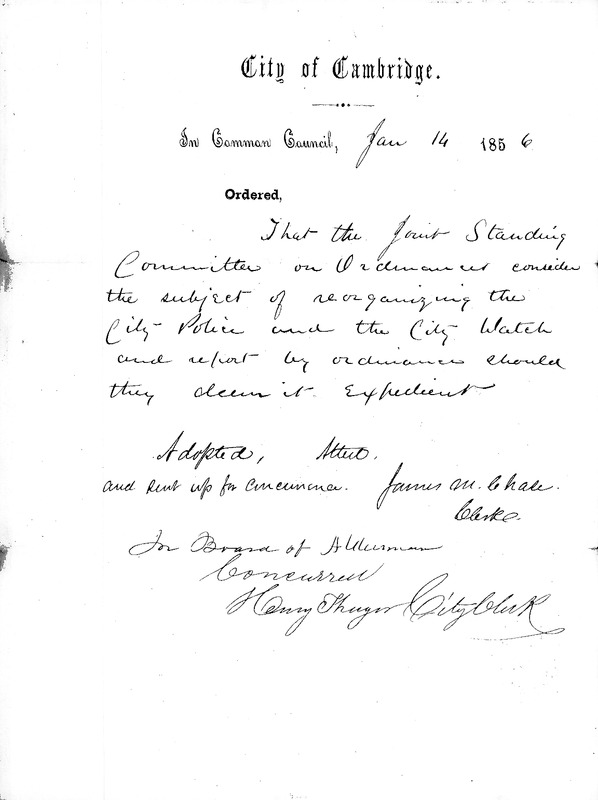 City of Cambridge.
In Common Council, Jan 14 1856
Ordered,
That the Joint Standing
Committee on Ordinances consider
the subject of reorganizing the
City Police and the City Watch
and report by ordinance should
they deem it Expedient
Adopted, Attest.
and sent up for concurrence. James M. Chase.
Clerk.
In Board of Aldermen
Concurred
Henry Thayer City Clerk